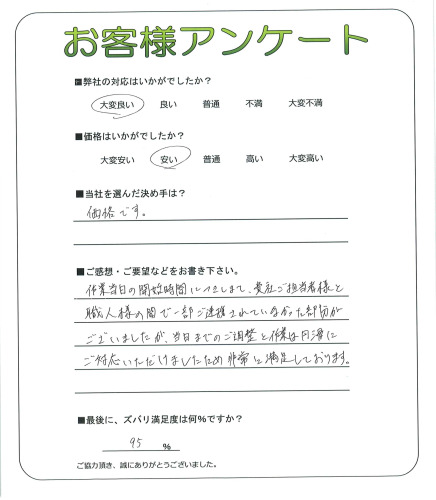 お客様アンケート
■弊社の対応はいかがでしたか？
大変良い 良い 普通 不満 大変不満
■価格はいかがでしたか？
大変安い 安い 普通 高い 大変高い
■当社を選んだ決め手は？
価格です。
■ご感想・ご要望などをお書き下さい。
作業当日の開始時間につきまして、貴社ご担当者様と
職人様の間で一部ご連携されていなかった部分が
ございましたが、当日までのご調整と作業は円滑に
ご対応いただけましたため非常に満足しております。
■最後に、ズバリ満足度は何％ですか？
95 ％
ご協力頂き、誠にありがとうございました。